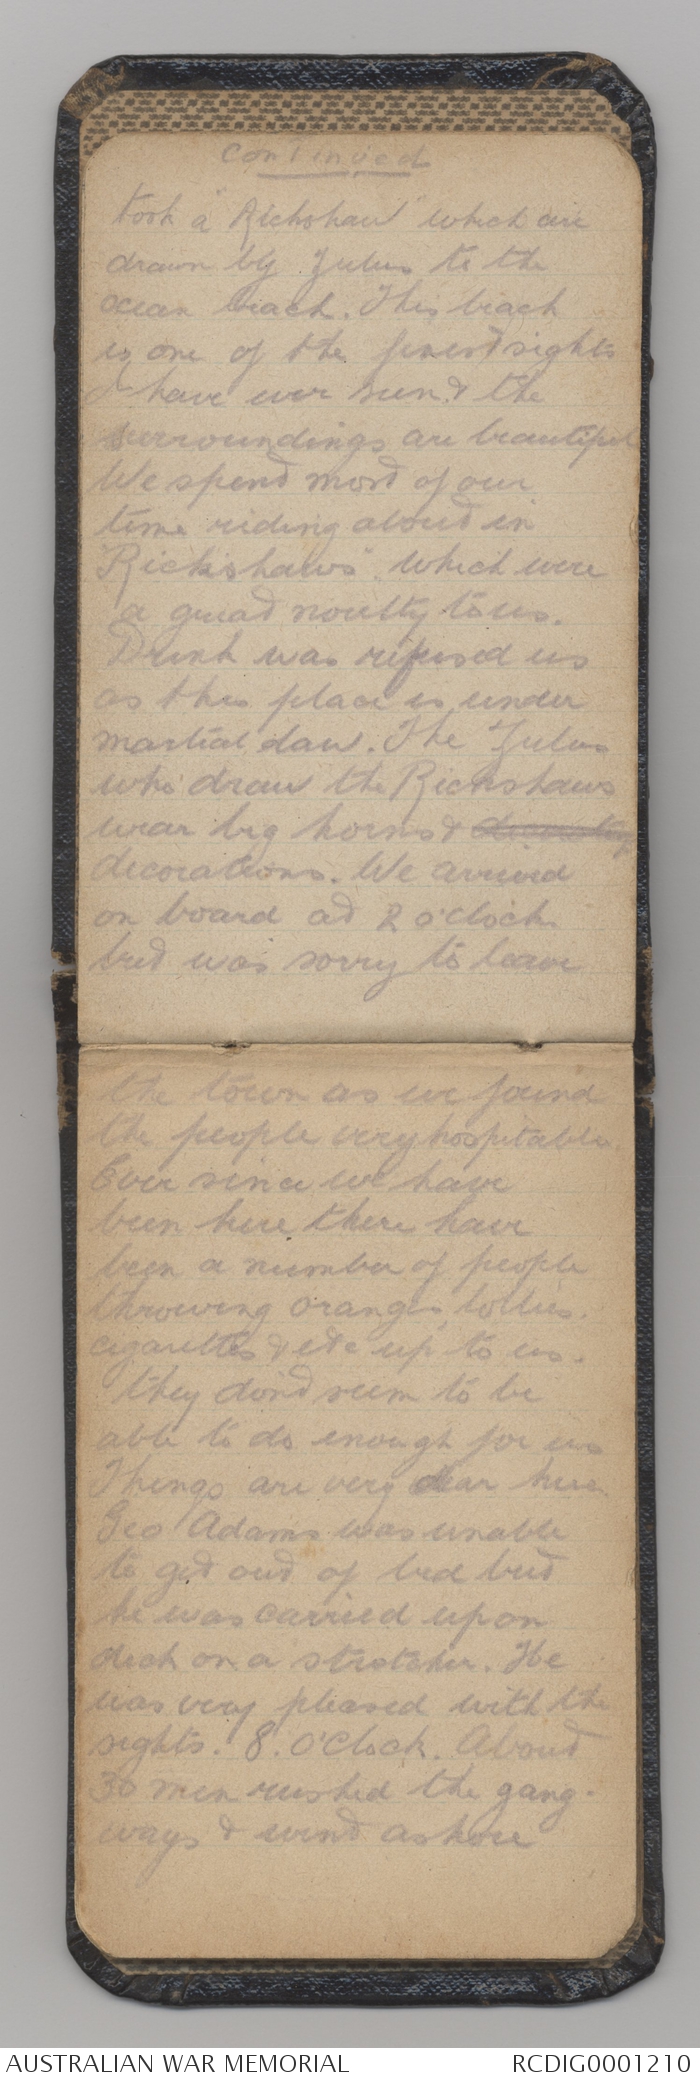 continued
took a "Rickshaw" which are
drawn by Zulus to the
ocean beach. This beach
is one of the finest sights
I have ever seen & the
surroundings are beautiful
We spend most of our
time riding about in
"Rickshaws". which were
a great novelty to us.
Drink was refused us
as this place is under
martial law. The Zulus
who draw the Rickshaws
wear big horns &
decorations. We arrived
on board at 2 o'clock
but was sorry to leave
the town as we found
the people very hospitable
Ever since we have
been here there have
been a number of people
throwing oranges, lollies,
cigarettes & etc up to us.
they don't seem to be
able to do enough for us
Things are very dear here
Geo Adams was unable
to get out of bed but
he was carried up on
deck on a stretcher. He
was very pleased with the
sights. 8. O'Clock. About
30 men rushed the gang-
ways & went ashore
AUSTRALIAN WAR MEMORIAL RCDIG0001210